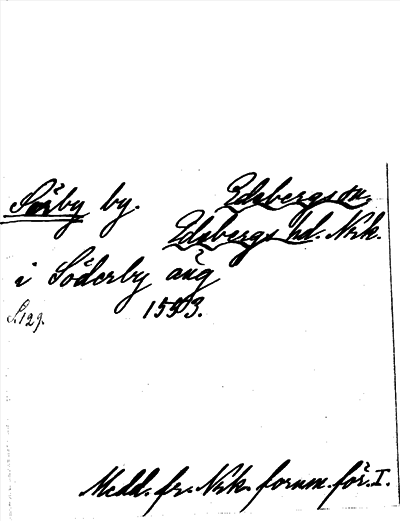 Sörby by. Edsbergs sn.
Edsbergs hd. Nrk.
i Söderby äng
S.129. 1553.
Medd. fr. Nrk. fornm. för. I.